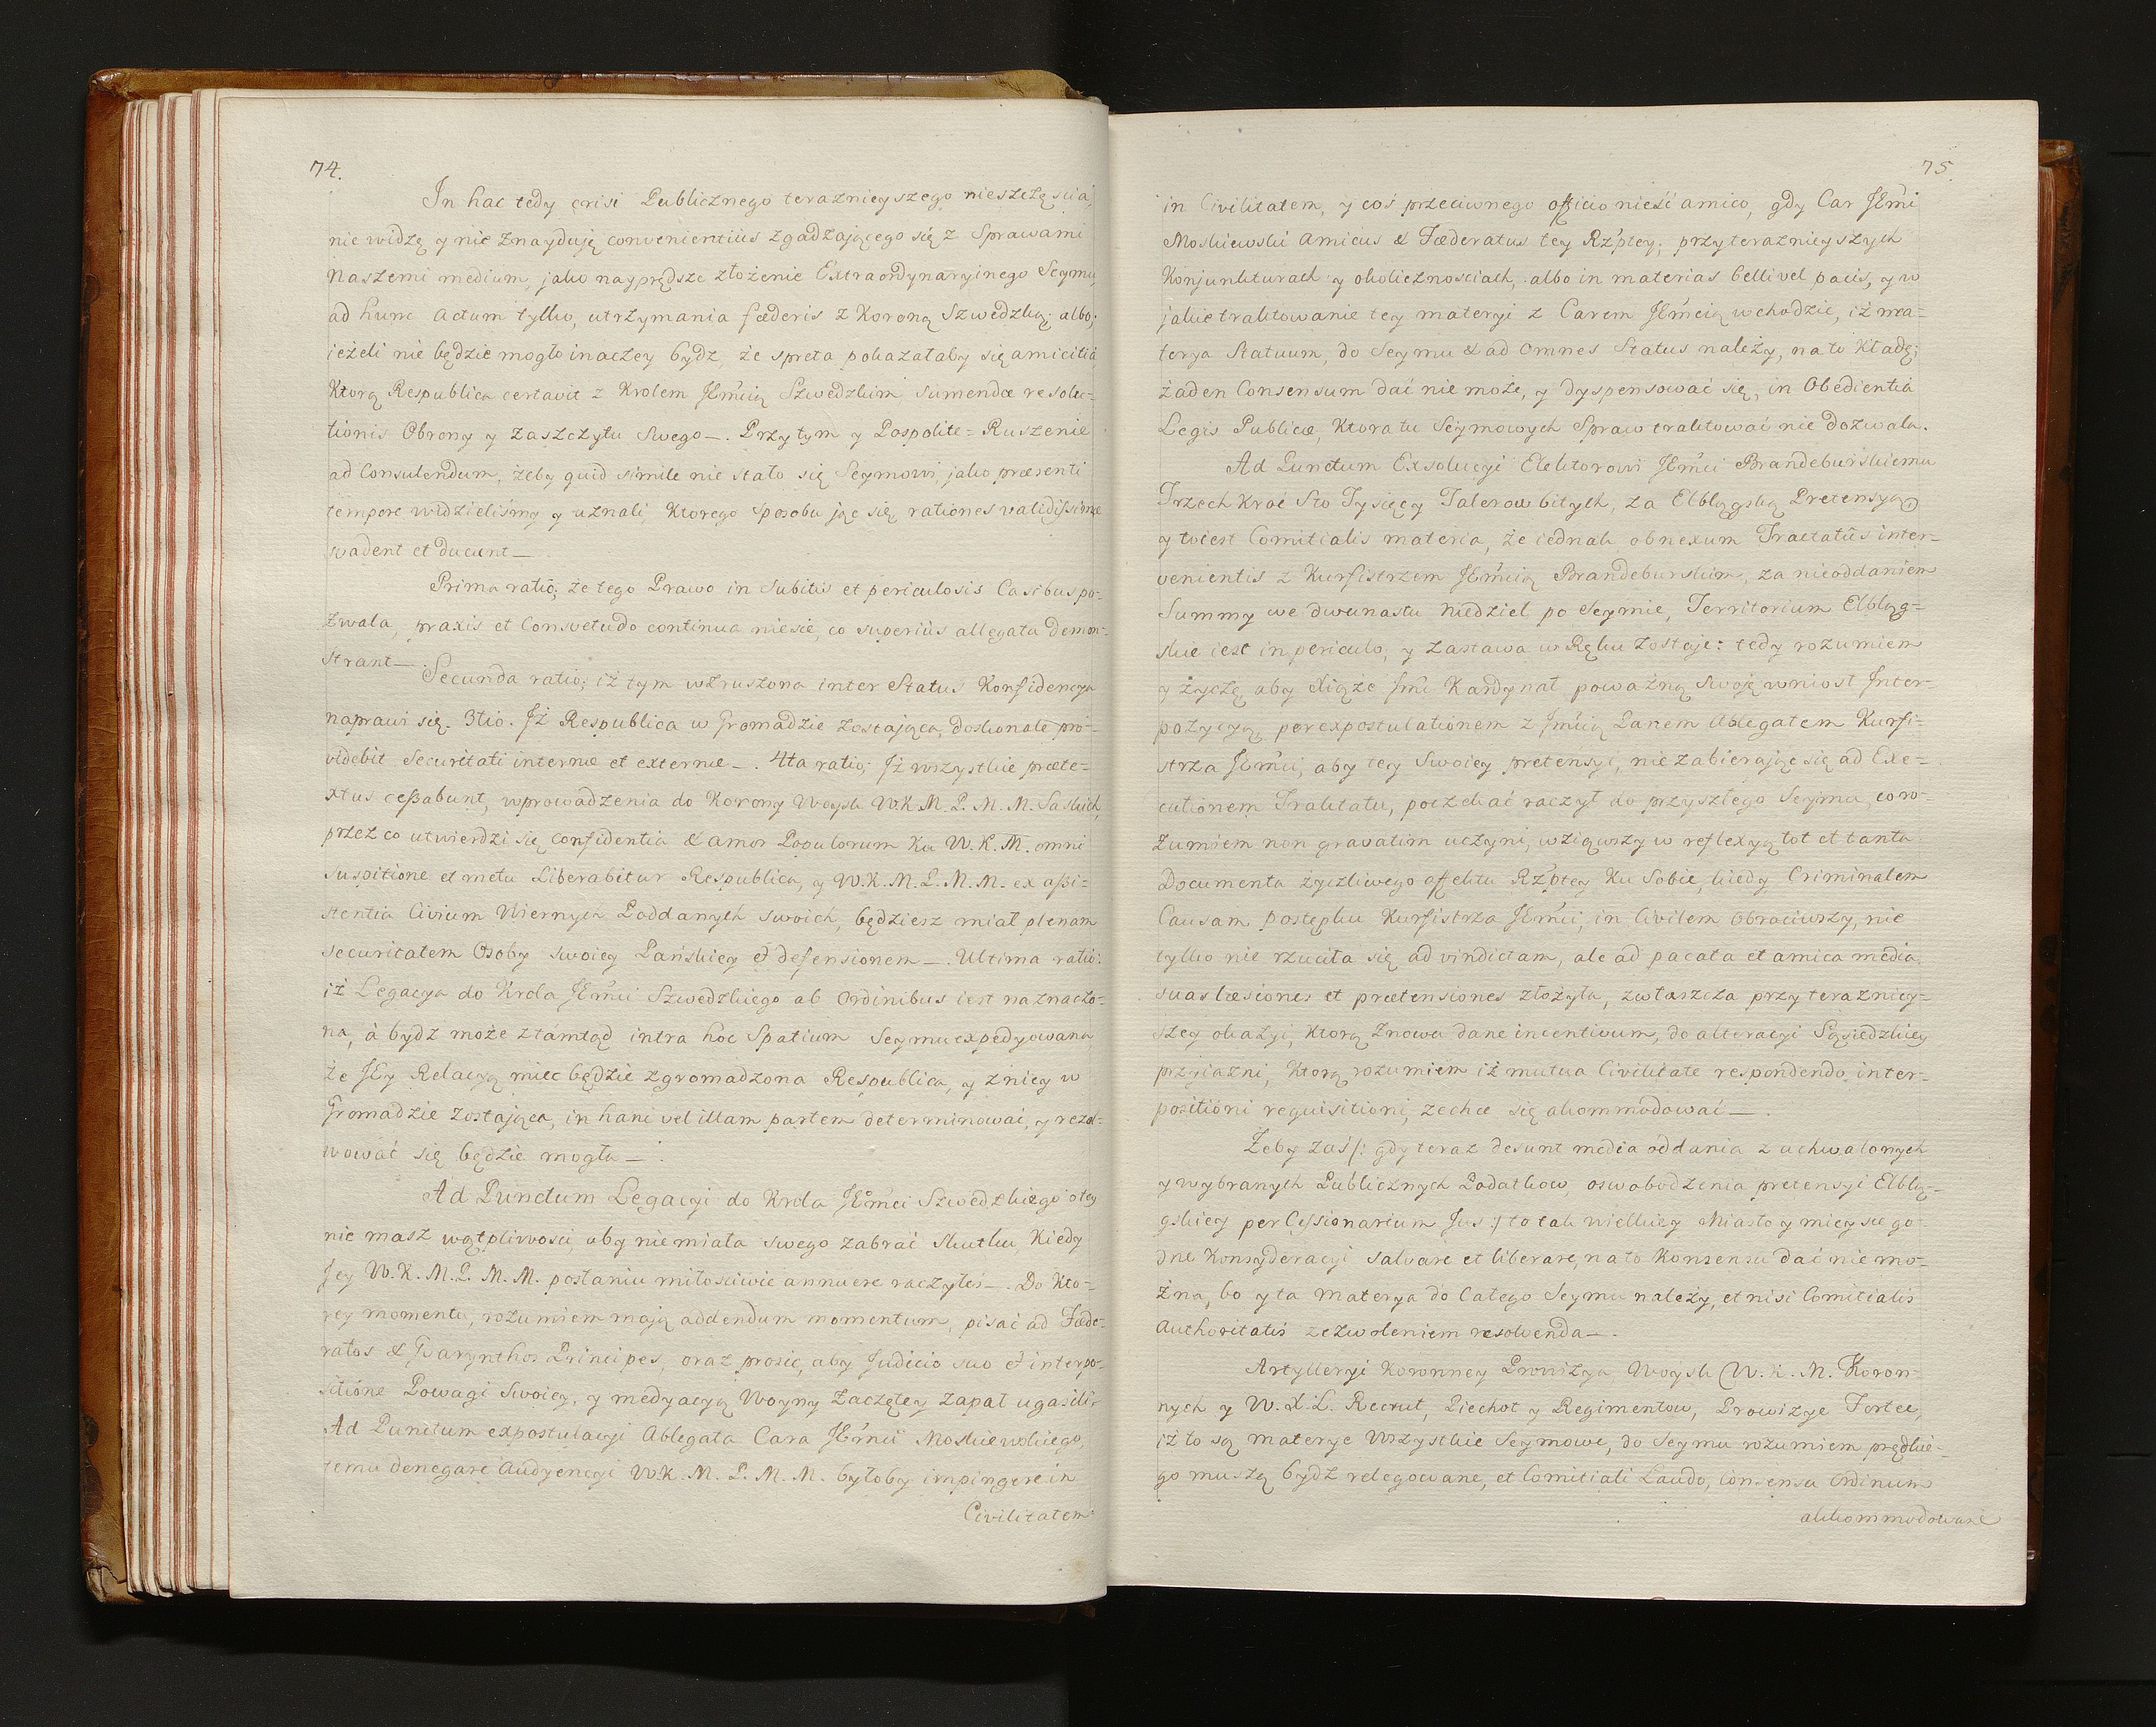 74.
In hac tedy crisi Publicznego teraznieyszego nieszczęscia,
nie widzę y nie znayduję convenientiùs zgadzaiącego się z Sprawami
Naszemi medium, jako nayprędsze złożenie Extraordynaryinego Seymu,
ad hunc Actum tylko, utrzymania fœderis z Koroną Szwedzką; albo;
ieżeli nie będzie mogło inaczey bydz, że spreta pokazałaby się amicitia
Ktorą Respublica certavit z Krolem JEmcią Szwedzkim, sumendæ resolu-
tionis Obrony y zaszczytu Swego—. Przytym y Pospolite=Ruszenie
ad Consulendum, żeby quid simile nie stało się Seymowi, jako præsenti
tempore widzieliśmy y uznali, Ktorego sposobu jąc się, rationes validissimæ
suadent et ducunt—
Prima ratio; że tego Prawo in subitis et periculosis Casibus po-
zwala, praxis et Consvetudo continua niesie, co superiùs allegata demon-
strant—.
Secunda ratio; iż tym wzruszona inter Status Konfidencya
naprawi się. 3tio. Jż Respublica w Gromadzie zostająca, doskonale pro-
videbit Securitati internæ et externæ—. 4ta ratio; Jż wszystkie præte-
xtus ceßabunt, wprowadzenia do Korony Woysk W.K.M.P.M.M. Saskich,
przez co utwierdzi się confidentia & amor Populorum Ku W.K.M. omni
suspitione et metu Liberabitur Respublica, y W.K.M.P.M.M. ex aßi-
stentia Civium Wiernych Poddanych swoich, będziesz miał plenam
securitatem Osoby swoiey Pańskiey et defensionem—. Ultima ratio:
iż Legacya do Krola JEmci Szwedzkiego ab Ordinibus iest naznaczo-
na, à bydz może ztamtąd intra hoc Spatium Seymu expedyowana
że JEy Relacyą miec będzie zgromadzona Respublica, y z niey w
Gromadzie zostająca, in hanc vel illam partem determinować, y rezol-
wować się będzie mogła—.
Ad Punctum Legacyi do Krola JEmci Szwedzkiego o tey
nie masz wątpliwości, aby niemiała swego zabrać skutku, Kiedy
Jey W.K.M.P.M.M. posłaniu miłosciwie annuere raczyłeś—. Do Kto-
rey momentu, rozumiem mają addendum momentum, pisać ad Fæde-
ratos & Gwarynthos Principes, oraz prosic, aby Judicio suo et interpo-
sitione Powagi Swoiey, y medyacyą Woyny Zaczętey zapał ugasili.
Ad Punctum expostulacyi Ablegata Cara JEmci Moskiewskiego,
temu denegare Audyencyi W.K.M.P.M.M. byłoby impingere in
Civilitatem
75.
in Civilitatem, y coś przeciwnego officio nieść amico, gdy Car JEmci
Moskiewski Amicus & Fœderatus tey Rz'ptey; przy teraznieyszych
Konjunkturach y okolicznosciach, albo in materias belli vel pacis, y w
jakie traktowanie tey materyi z Carem JEmcią wchodzic, iż ma-
terya Statuum, do Seymu & ad Omnes Status należy, na to Kładę;
żaden Consensum dać nie może, y dyspensować się, in Obedientia
Legis Publicæ, Ktora tu Seymowych Spraw traktować nie dozwala.
Ad Punctum Exsolucyi Elektorowi JEmci Brandeburskiemu
Trzech Kroć Sto Tysięcy Talerow bitych, za Elblągską Pretensyą
y to iest Comitialis materia, że iednak ob nexum Tractatûs inter-
venientis z Kurfistrzem JEmcią Brandeburskim, za nieoddaniem
Summy we dwunastu Niedziel po Seymie, Territorium Elbląg-
skie iest in periculo, y zastawa w Ręku zostaje: tedy rozumiem
y życzę, aby Xiąże Jmć Kardynał poważną swoją wniosł Inter-
pozycyą, per expostulationem z Jmcią Panem Ablegatem Kurfi-
strza JEmci, aby tey Swoiey pretensyi, nie zabierając się ad Exe-
cutionem Traktatu, poczekać raczył do przyszłego Seymu, co ro-
zumiem non gravatim uczyni, wziąwszy w reflexyą tot et tanta
Documenta życzliwego afektu Rz'ptey Ku Sobie, kiedy Criminalem
Causam postępku Kurfistrza JEmci, in Civilem obrociwszy, nie
tylko nie rzuciła się ad vindictam, ale ad pacata et amica media,
suas læsiones et prætensiones złożyła, zwłaszcza przy terazniey-
szey okazyi, Ktorą znowu dane incentivum, do alteracyi Sąsiedzkiey
przyiazni, Ktorą rozumiem iż mutua Civilitate respondendo inter-
positioni requisitioni, zechce się akommodować—.
Żeby zaś /: gdy teraz desunt media oddania z uchwalonych
y wybranych Publicznych Podatkow, oswobodzenia pretensyi Elblą-
gskiey per Cessionarium Jus :/ to tak wielkiey Miasto y mieysce go-
dne Konsyderacyi salvare et liberare, na to Konsensu dać nie mo-
żna, bo y ta Materya do Całego Seymu należy, et nisi Comitialis
Authoritatis zezwoleniem resolvenda—.
Artylleryi Koronney Prowizya Woysk W.K.M. Koron-
nych y W.X.L. Recrut, Piechot y Regimentow, Prowizye Fortec,
iż to są materye Wszystkie Seymowe, do Seymu rozumiem prędkie-
go muszą bydz relegowane, et Comitiali Laudo, Consensu Ordinum
akkommodowane